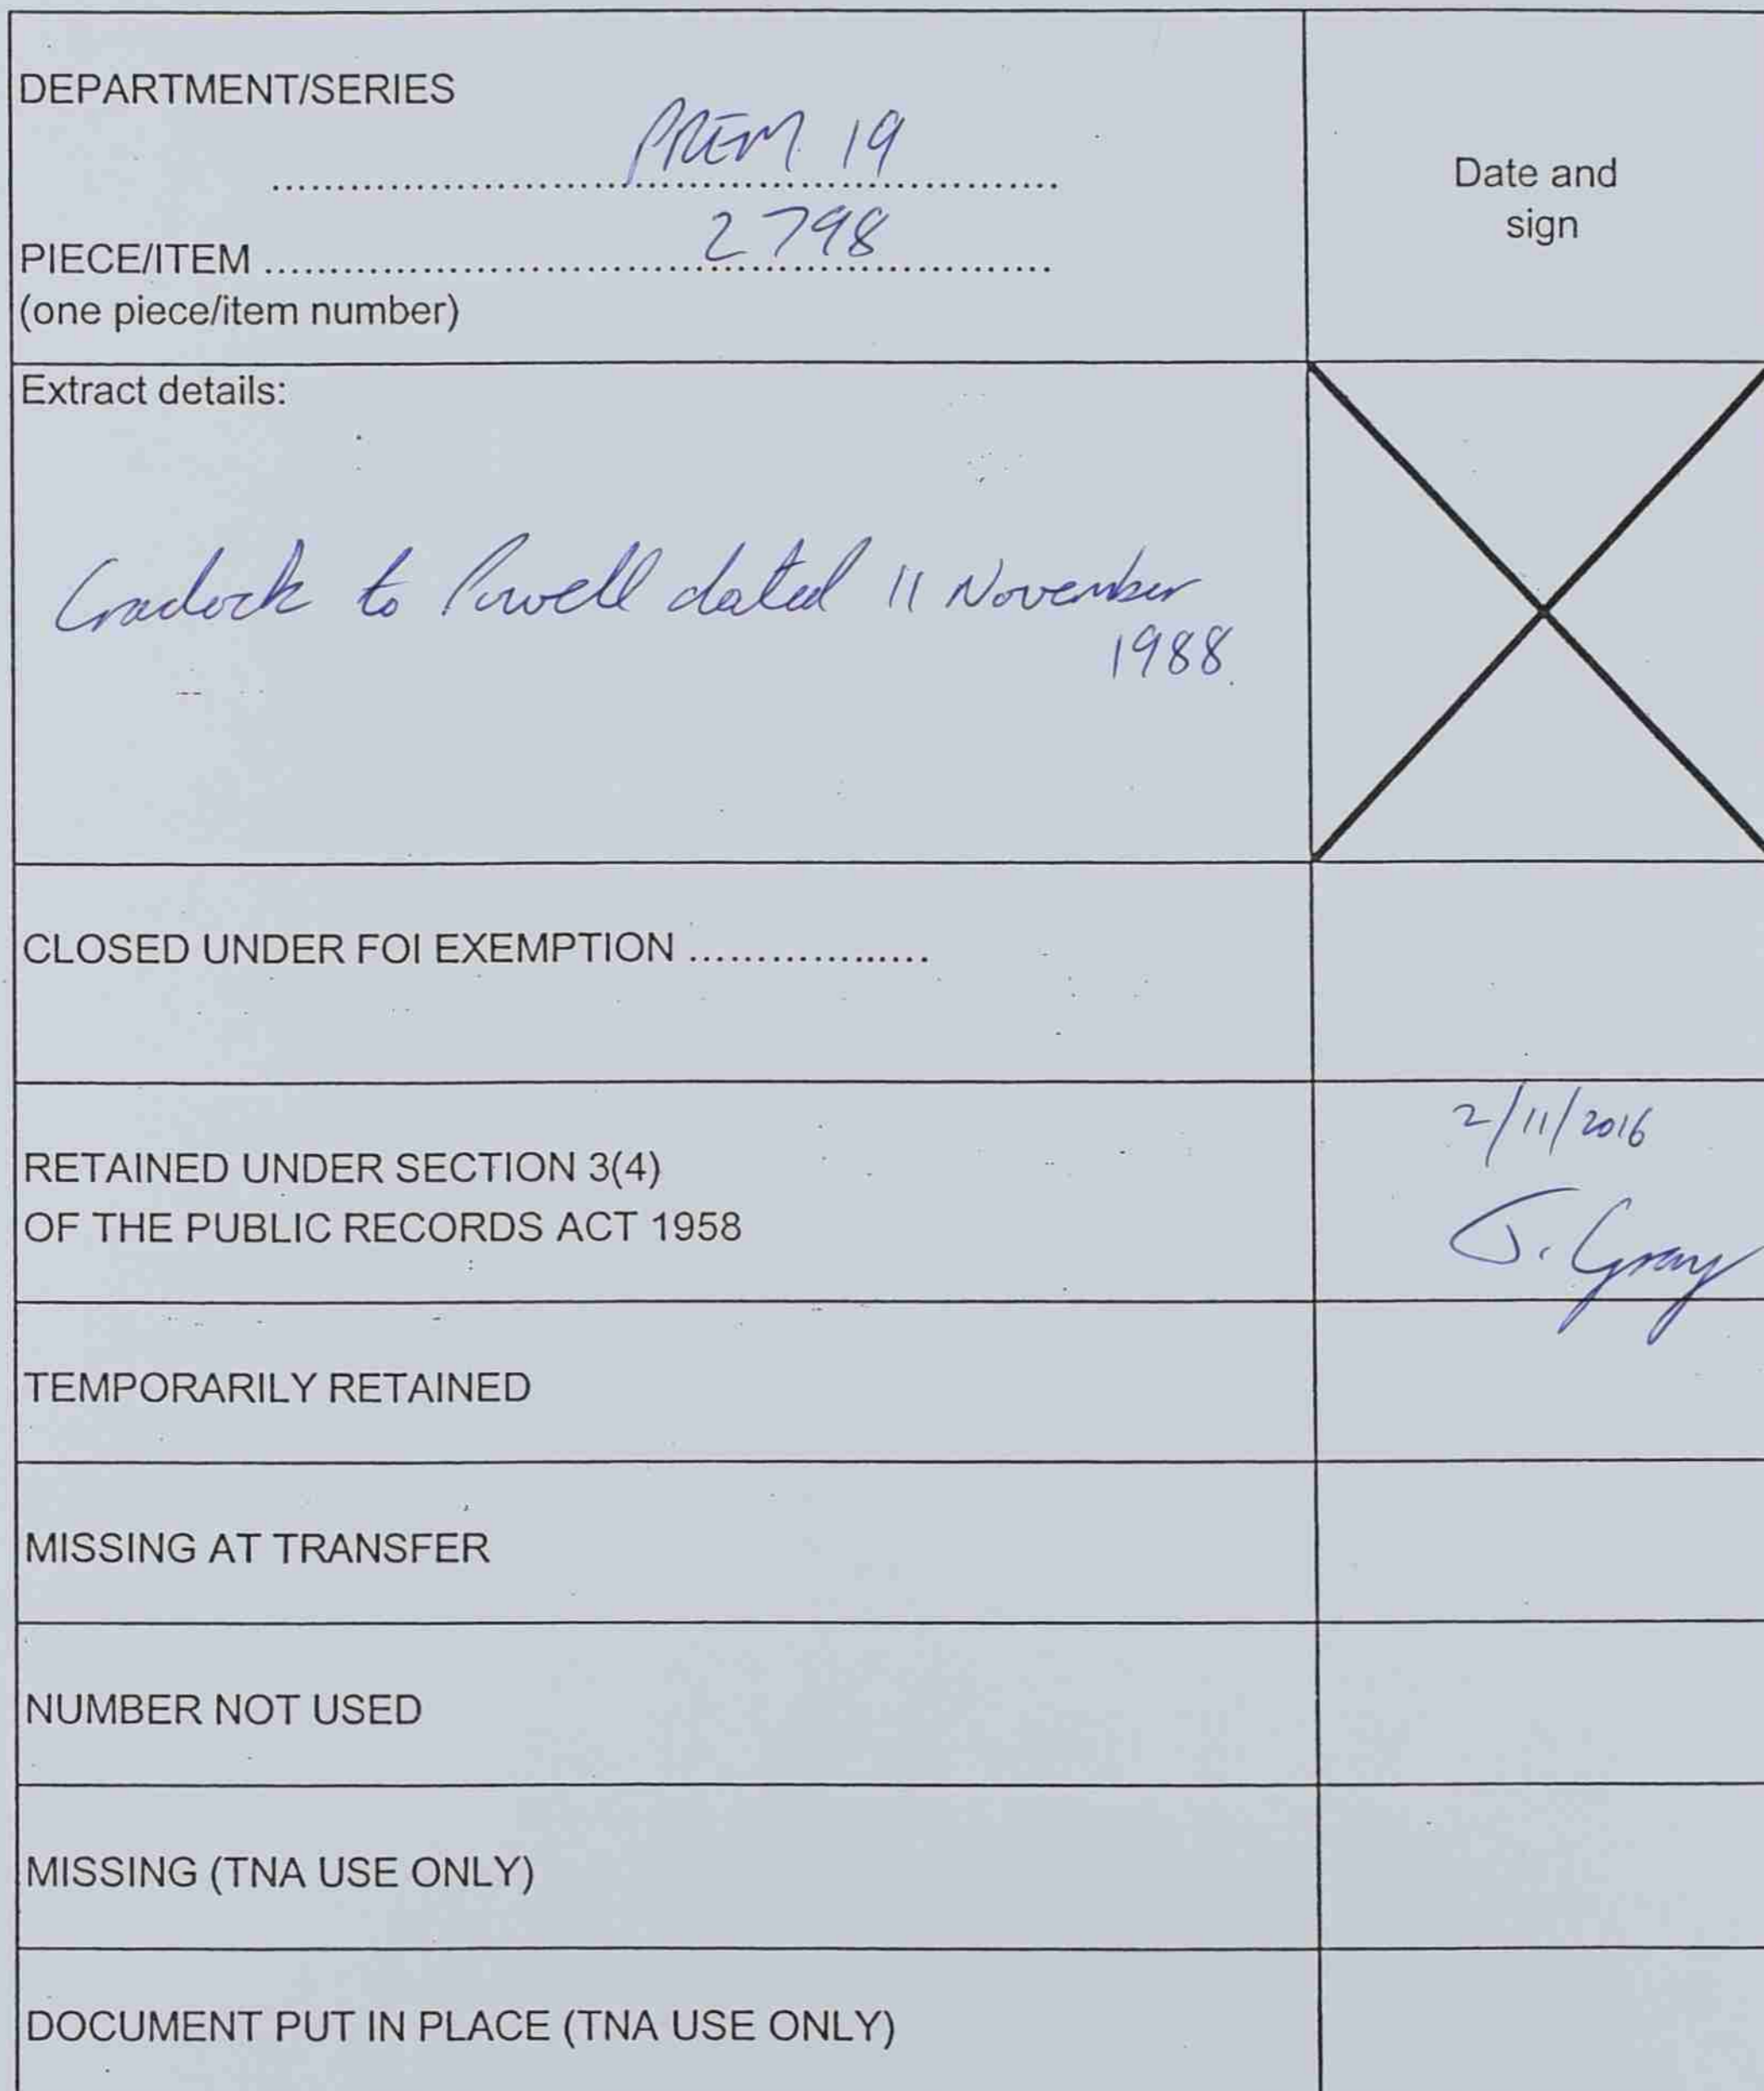 DEPARTMENT/SERIES
PREM 19
Date and
sign
2798
PIECE/ITEM
(one piece/item number)
Extract details:
Cradock to Powell dated 11 November
1988.
CLOSED UNDER FOI EXEMPTION
RETAINED UNDER SECTION 3(4)
OF THE PUBLIC RECORDS ACT 1958
2/11/2016
J. Gray
TEMPORARILY RETAINED
MISSING AT TRANSFER
NUMBER NOT USED
MISSING (TNA USE ONLY)
DOCUMENT PUT IN PLACE (TNA USE ONLY)